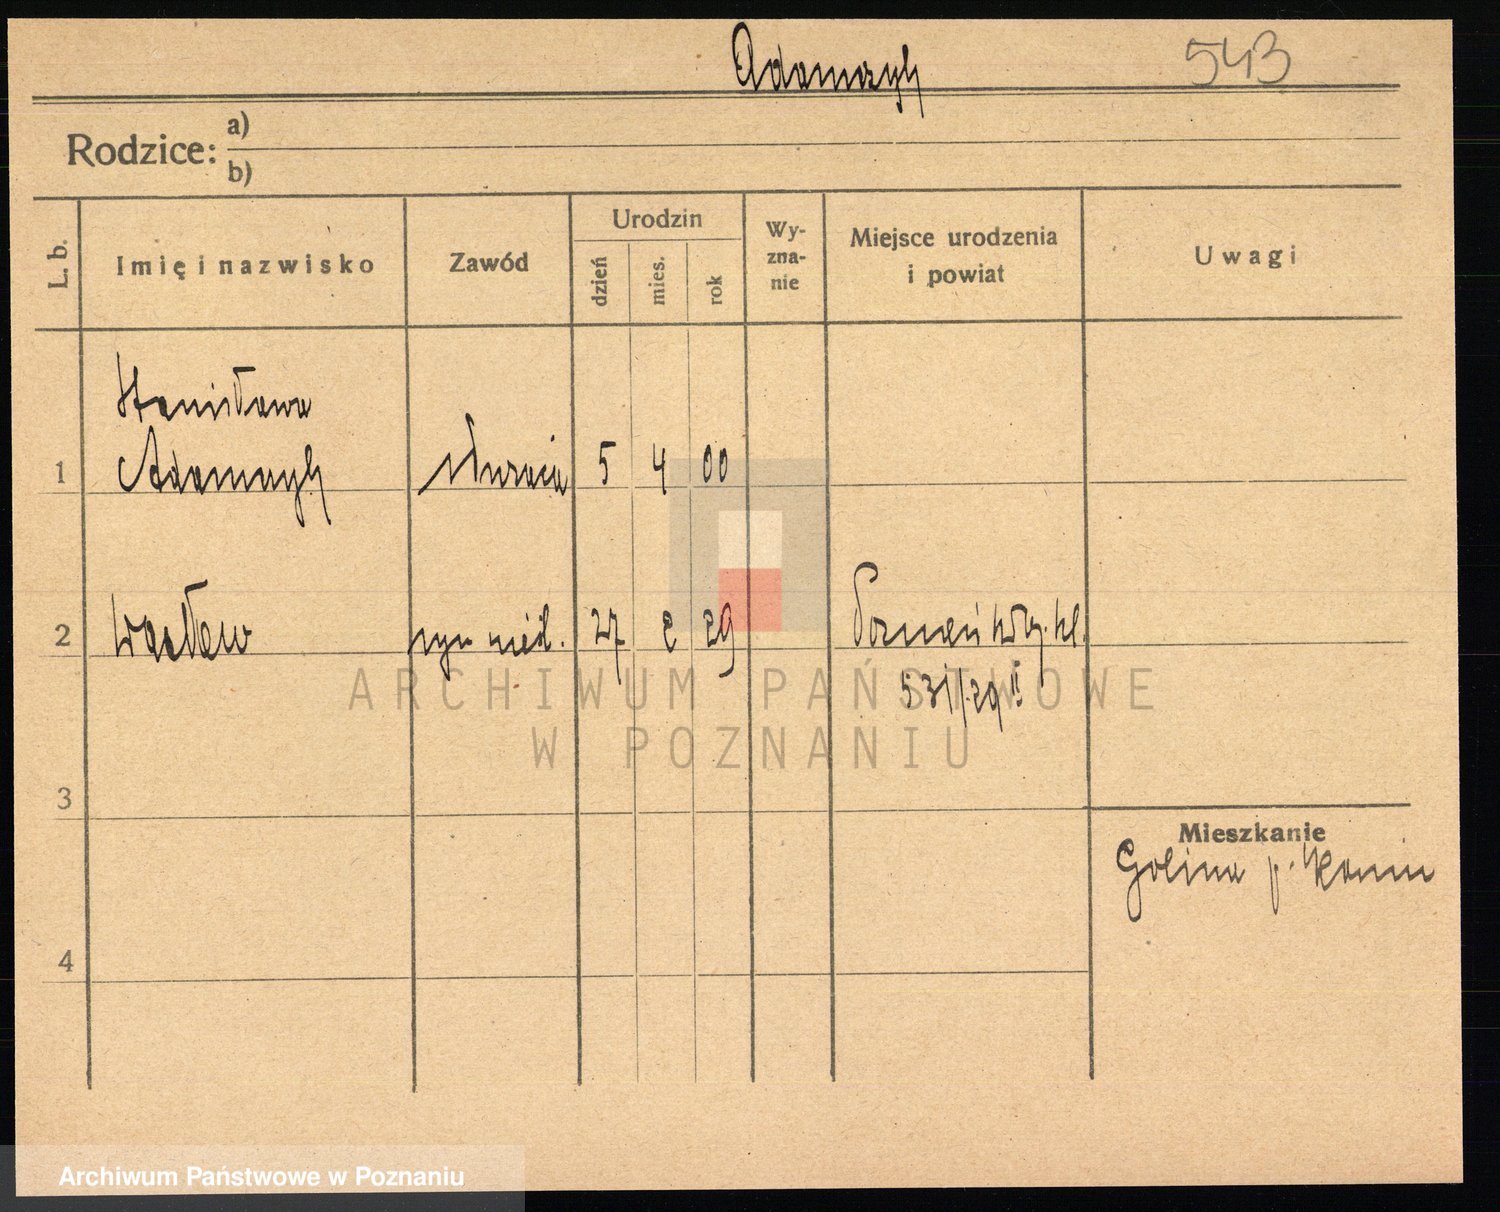 Adamczyk
543
Rodzice: a)
b)
L. b.
Imię i nazwisko
Zawód
Urodzin
dzień
mies.
rok
Wy-
zna-
nie
Miejsce urodzenia
i powiat
Uwagi
Stanisława
1 Adamczyk służąca 5 4 00
2 Wacław syn nieśl. 27 2 29 Poznań
531/29 II
ARCHIWUM PAŃSTWOWE
W POZNANIU
3
Mieszkanie
Golina p. Konin
4
Archiwum Państwowe w Poznaniu